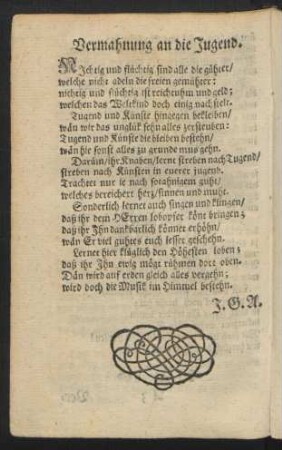 Vermahnung an die Jugend.
NIchtig und flüchtig sind alle die gühter/
welche nicht adeln die freien gemühter:
nichtig und flüchtig ist reichtuhm und geld;
welchen das Weltkind doch einig nach stelt.
Tugend und Künste hinegen bekleiben/
wän wir das unglük sehn alles zerstreuben:
Tugend und Künste die bleiben bestehn/
wän hie sonst alles zu grunde mus gehn.
Darüm/ihr Knaben/lernt streben nach Tugend/
streben nach Künsten in euerer jugend.
Trachtet nur ie nach sotahnigem guht/
welches bereichert herz/sinnen und muht.
Sonderlich lernet auch singen und klingen/
daß ihr dem HErren lobopfer könt bringen;
daß ihr Ihn dankbarlich könnet erhöhn/
wän Er viel guhtes euch lesset geschehn.
Lernet hier klüglich den Höhesten loben;
daß ihr Ihn ewig mögt rühmen dort oben.
Dän wird auf erden gleich alles vergehn;
wird doch die Musik im Himmel bestehn.
J. G. A.